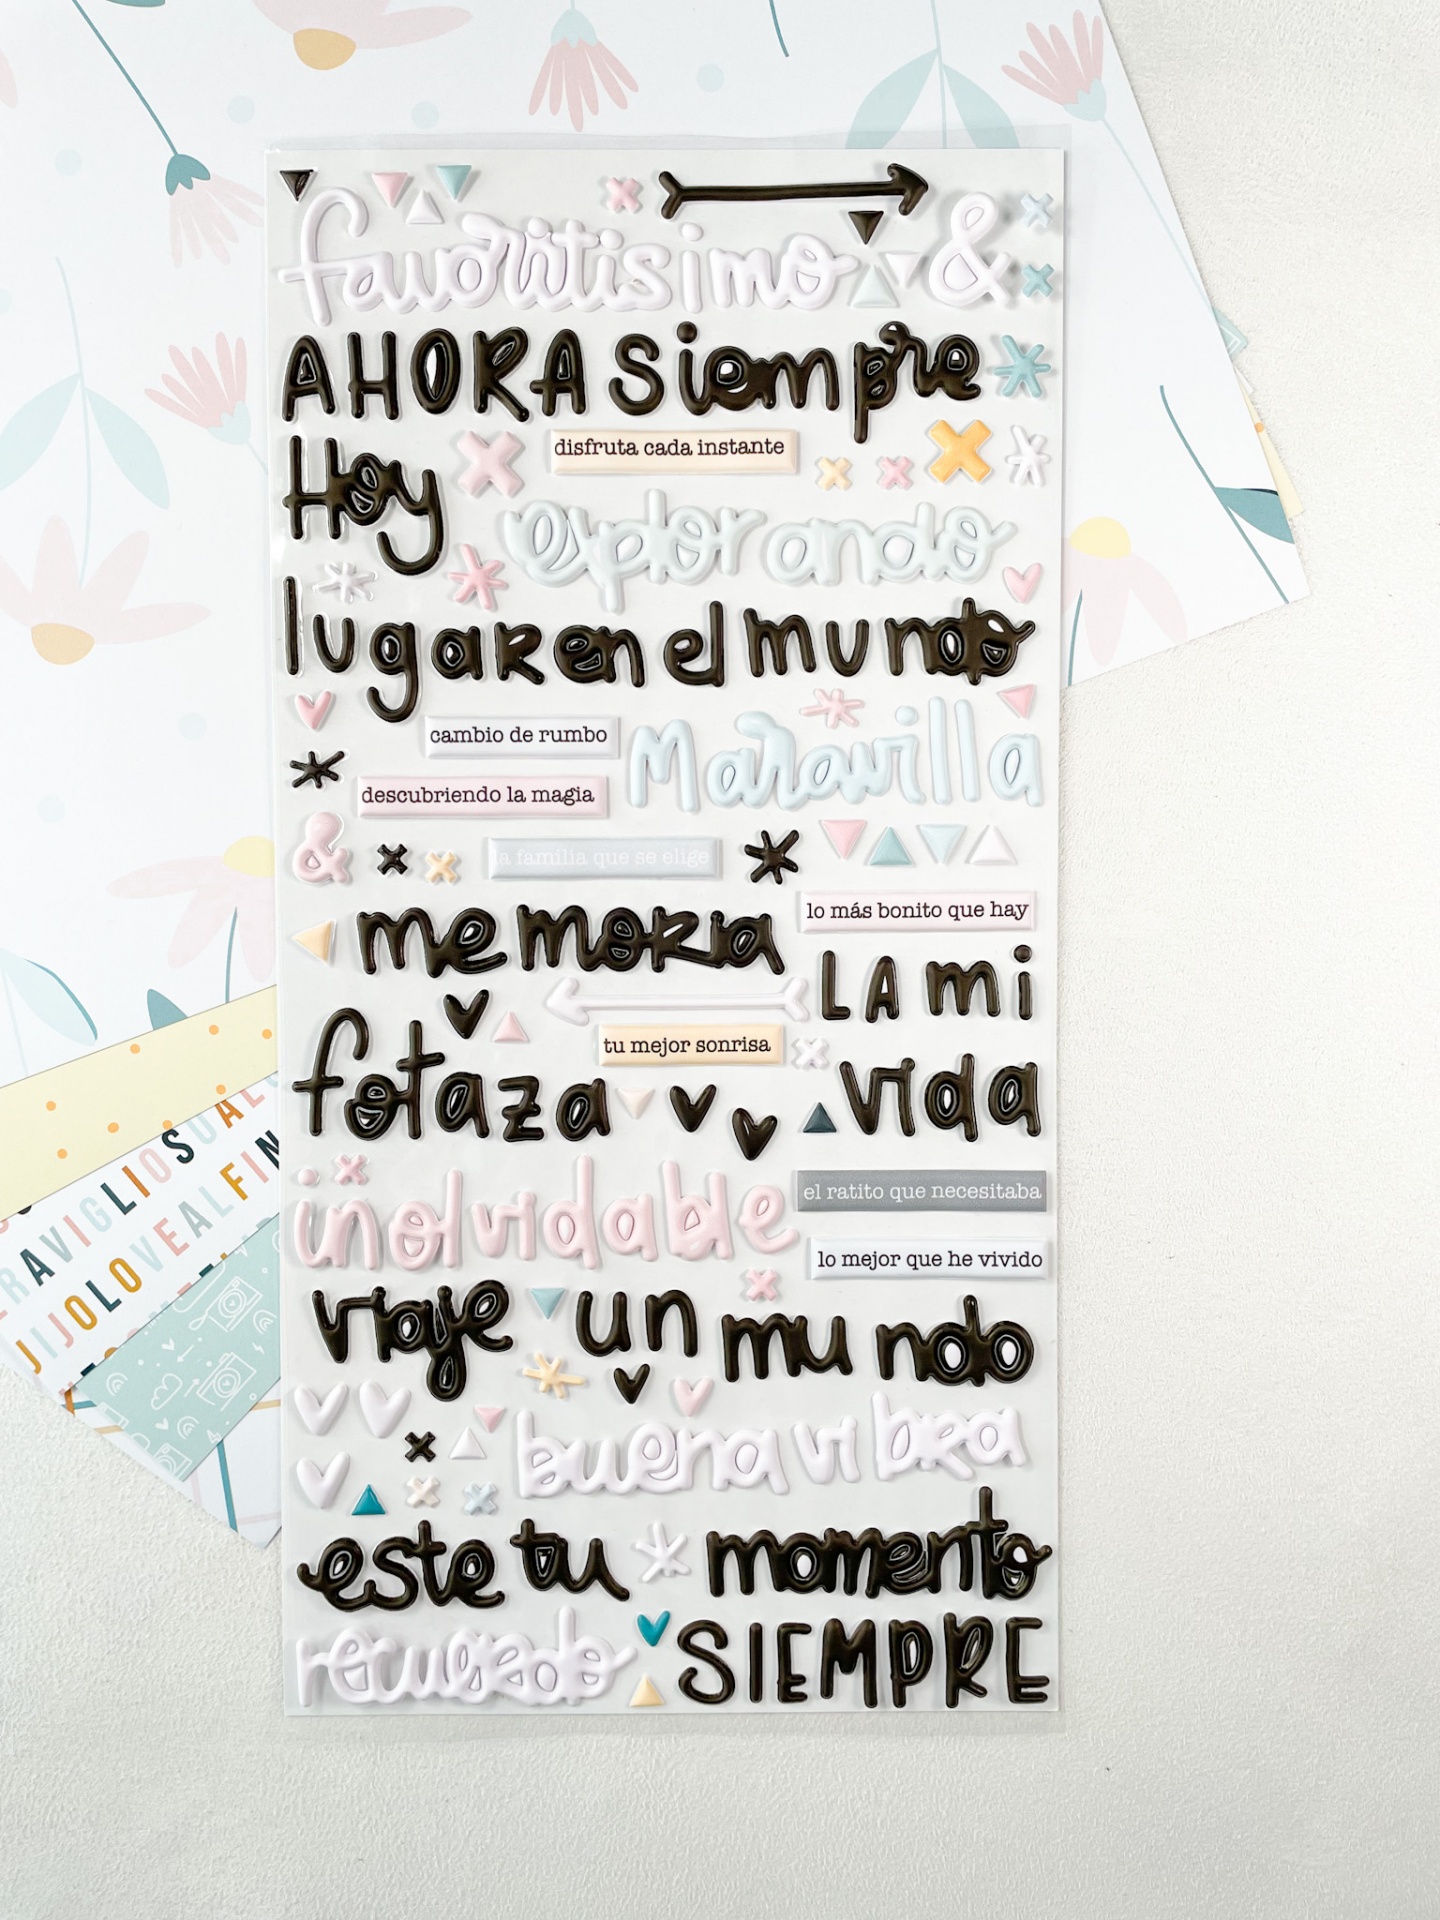 favoritisimo &
AHORA siempre
disfruta cada instante
Hoy
explorando
lugar en el mundo
cambio de rumbo
Maravilla
descubriendo la magia
&
la familia que se elige
lo más bonito que hay
memoria
LA mi
tu mejor sonrisa
fotaza
vida
inolvidable
el ratito que necesitaba
lo mejor que he vivido
viaje un mundo
buena vibra
este tu momento
recuerdo SIEMPRE